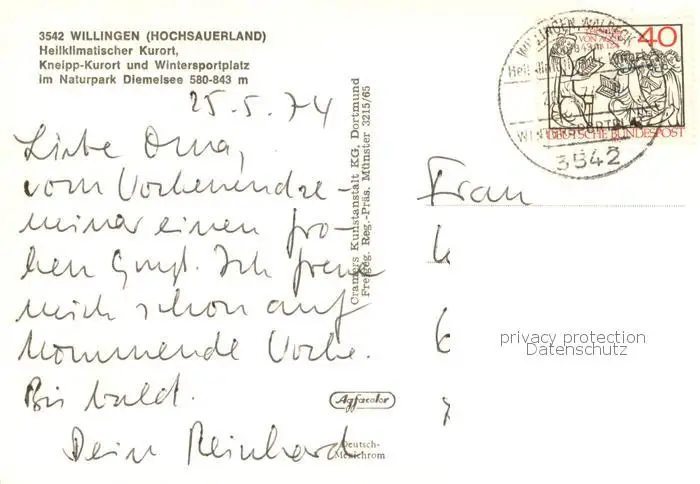 3542 WILLINGEN (HOCHSAUERLAND)
Heilklimatischer Kurort,
Kneipp-Kurort und Wintersportplatz
im Naturpark Diemelsee 580-843 m
25.5.74
Liebe Oma,
vom Wochenendse-
minar einen fro-
hen Gruß. Ich freue
mich schon auf
kommende Woche.
Bis bald.
Dein Reinhard
Cramers Kunstanstalt KG, Dortmund
Freigeg. Reg.-Präs. Münster 3215/65
Agfacolor
Deutsch-
Mexichrom
40
DEUTSCHE BUNDESPOST
WILLINGEN, WALDECK
3542
Frau
privacy protection
Datenschutz